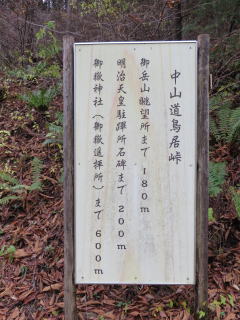 中山道鳥居峠
御岳山眺望所まで 180m
明治天皇駐蹕所石碑まで 200m
御嶽神社(御嶽遥拝所)まで 600m